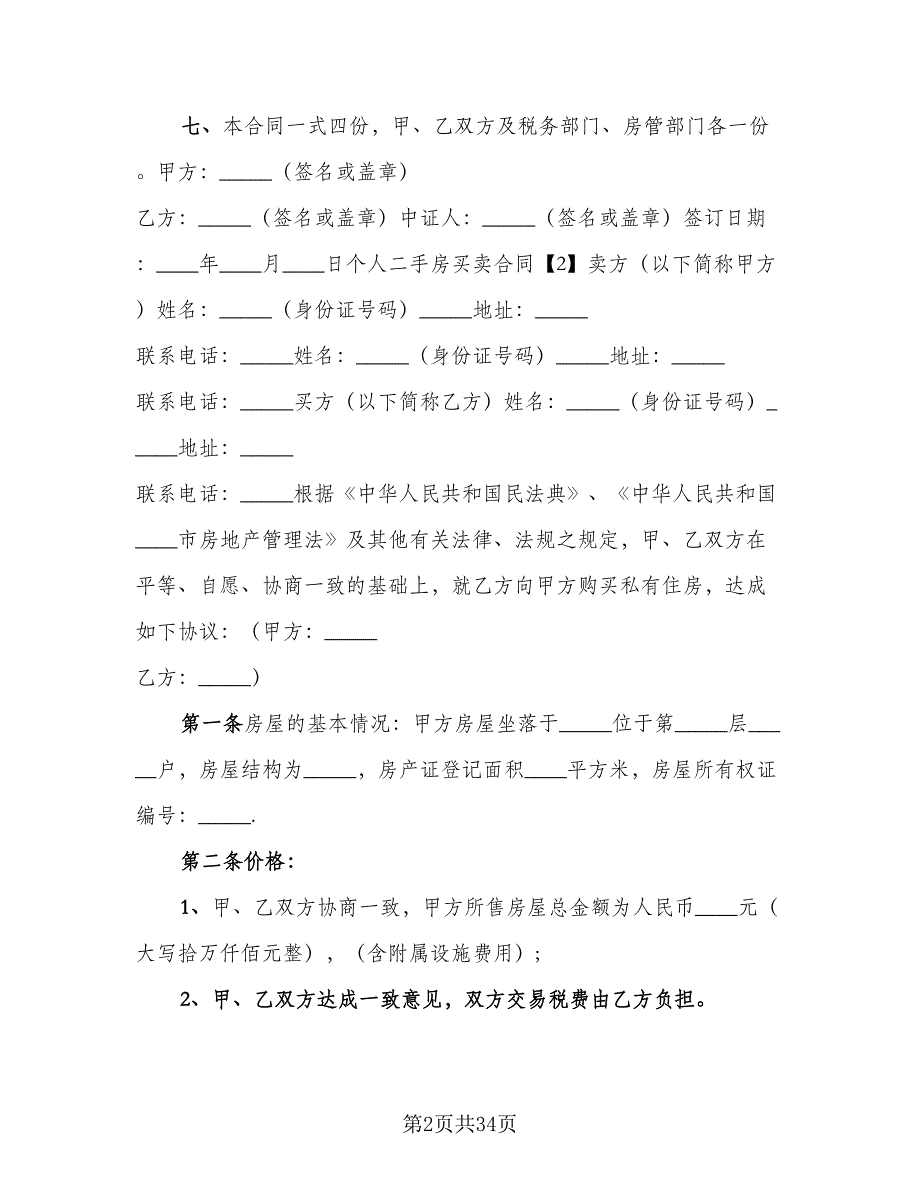 七、本合同一式四份，甲、乙双方及税务部门、房管部门各一份
。甲方：_____（签名或盖章）
乙方：_____（签名或盖章）中证人：_____（签名或盖章）签订日期
：____年____月____日个人二手房买卖合同【2】卖方（以下简称甲方
）姓名：_____（身份证号码）_____地址：_____
联系电话：_____姓名：_____（身份证号码）_____地址：_____
联系电话：_____买方（以下简称乙方）姓名：_____（身份证号码）_
____地址：_____
联系电话：_____根据《中华人民共和国民法典》、《中华人民共和国
____市房地产管理法》及其他有关法律、法规之规定，甲、乙双方在
平等、自愿、协商一致的基础上，就乙方向甲方购买私有住房，达成
如下协议：（甲方：_____
乙方：_____）
第一条房屋的基本情况：甲方房屋坐落于_____位于第_____层___
__户，房屋结构为_____，房产证登记面积____平方米，房屋所有权证
编号：_____.
第二条价格：
1、甲、乙双方协商一致，甲方所售房屋总金额为人民币____元（
大写拾万仟佰元整），（含附属设施费用）；
2、甲、乙双方达成一致意见，双方交易税费由乙方负担。
第2页共34页